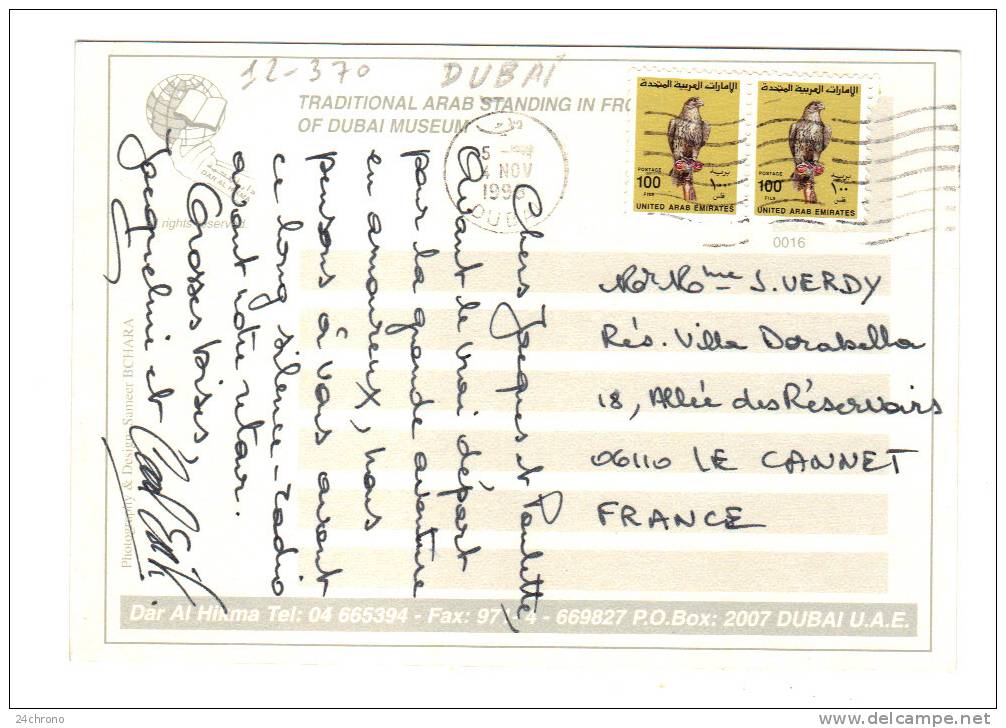 12-370 DUBAÏ
TRADITIONAL ARAB STANDING IN FRO
OF DUBAI MUSEUM
DAR AL H
rights reserved.
5
4 NOV
199
DUBA
الإمارات العربية المتحدة
POSTAGE بريد
100 ١٠٠
FILS فلس
UNITED ARAB EMIRATES
الإمارات العربية المتحدة
POSTAGE بريد
100 ١٠٠
FILS فلس
UNITED ARAB EMIRATES
0016
Chers Jacques et Paulette,
Avant le vrai départ
pour la grande aventure
en amoureux, nous
pensons à vous avant
ce long silence-radio
avant notre retour.
Grosses bises,
Jacqueline et
M et Mme J. VERDY
Rés. Villa Dorabella
18, Allée des Réservoirs
06110 LE CANNET
FRANCE
Photography & Design: Sameer BCHARA
Dar Al Hikma Tel: 04 665394 - Fax: 97 4 - 669827 P.O.Box: 2007 DUBAI U.A.E.
24chrono
delcampe.net